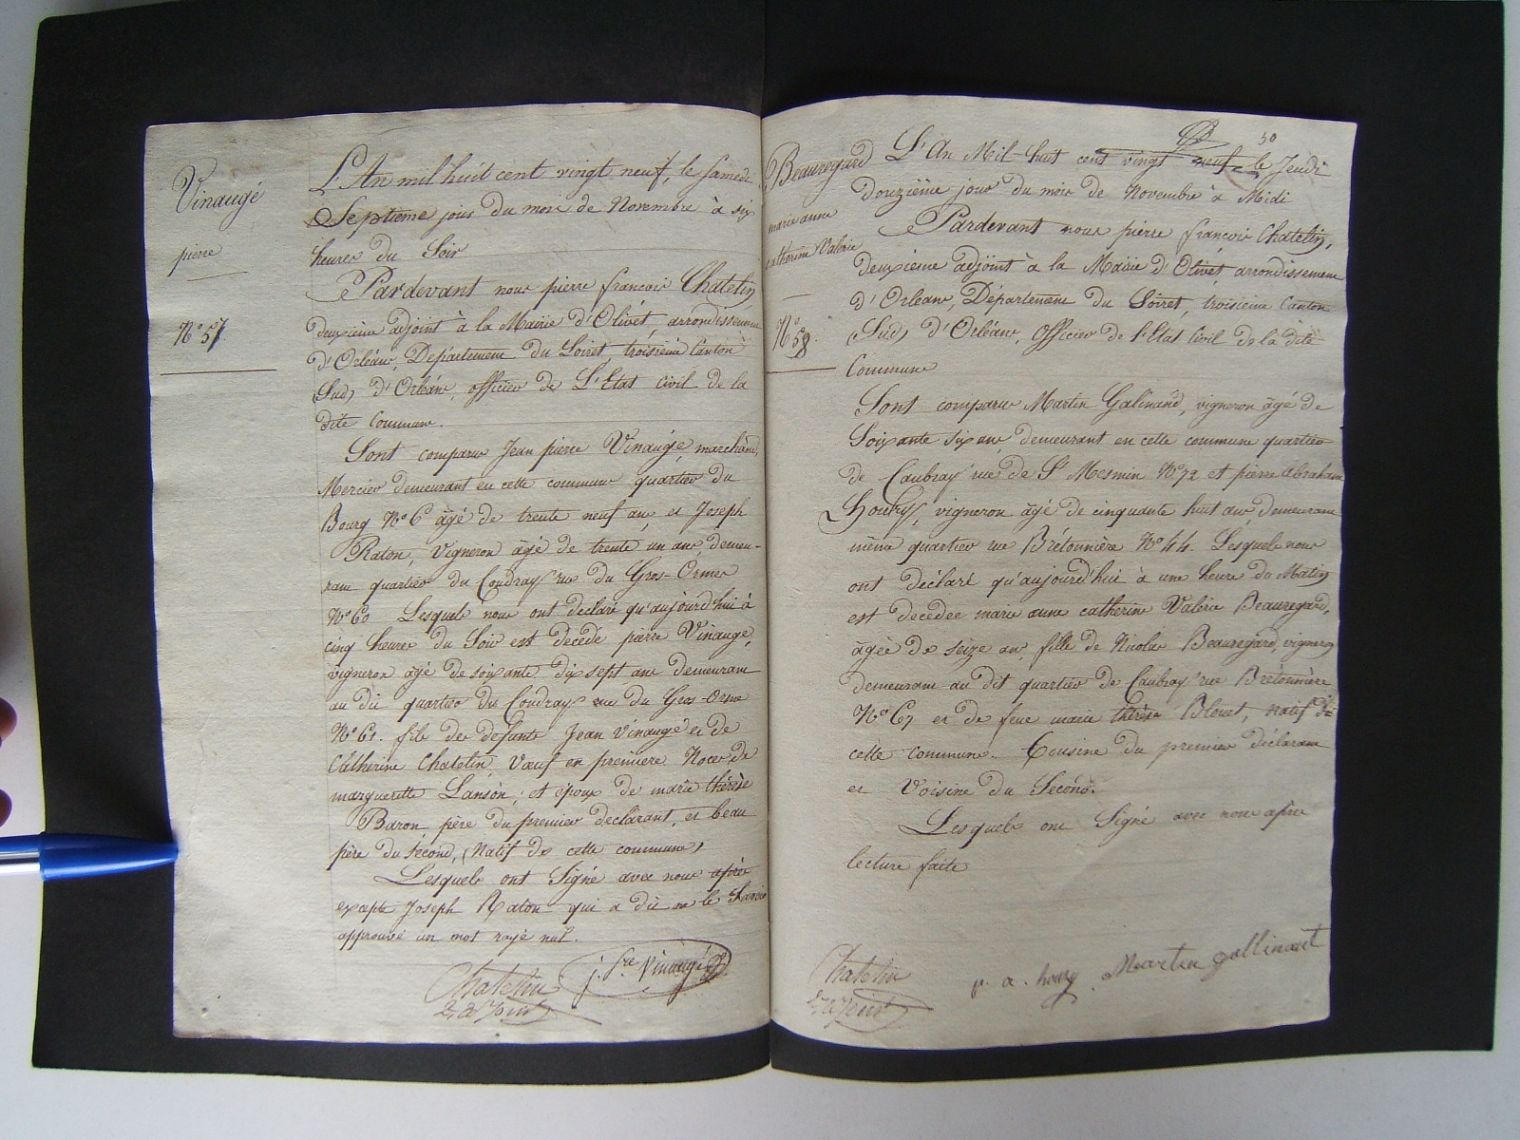 Vinaugé
pierre
N° 57.
L'An mil huit cent vingt neuf, le Samedi
Septieme jour du mois de Novembre à six
heures du Soir
Pardevant nous pierre francois Chatelin
deuxieme adjoint à la Mairie d'Olivet, arrondissement
d'Orléans, Departement du Loiret, troisieme Canton
(Sud) d'Orléans, officier de L'Etat civil de la
dite Commune.
Sont comparus Jean pierre Vinaugé, marchand
Mercier demeurant en cette commune quartier du
Bourg N° 6 âgé de trente neuf ans et Joseph
Raton, Vigneron âgé de trente un ans demeu-
rant quartier du Coudray rue du Gros-Orme
N° 60 Lesquels nous ont declaré qu'aujourd'hui à
cinq heures du Soir est decedé pierre Vinaugé,
vigneron âgé de soixante dix sept ans demeurant
au dit quartier du Coudray rue du Gros-Orme
N° 61. fils de defunts Jean Vinaugé et de
Catherine Chatelin, Vœuf en premiere Noces de
marguerite Lanson, et epoux de marie thérèse
Baron, père du premier declarant, et beau
père du second, (Natif de cette commune)
Lesquels ont Signé avec nous après
excepté Joseph Raton qui a dit ne le Savoir
approuvé un mot rayé nul.
Chatelin
2e adjoint
j. pre Vinaugé
50
Beauregard
marie anne
catherine Valerie
N° 58.
L'An Mil-huit cent vingt neuf le Jeudi
Douzième jour du mois de Novembre à Midi
Pardevant nous pierre françois Chatelin,
deuxieme adjoint à la Mairie d'Olivet arrondissement
d'Orleans, Département du Loiret, troisieme Canton
(Sud) d'Orléans, Officier de l'Etat Civil de la dite
Commune
Sont comparus Martin Galinand, vigneron âgé de
Soixante six ans, demeurant en cette commune quartier
de Caubray rue de St Mesmin N° 72 et pierre abraham
Houry, vigneron âgé de cinquante huit ans demeurant
même quartier rue Brétonnière N° 44. Lesquels nous
ont déclaré qu'aujourd'hui à une heure du Matin
est decédée marie anne catherine Valérie Beauregard,
âgée de seize ans, fille de Nicolas Beauregard, vigneron
demeurant au dit quartier de Caubray rue Brétonnière
N° 67 et de feue marie thérèse Blouet, natif de
cette commune. Cousine du premier déclarant
et Voisine du Second.
Lesquels ont Signé avec nous après
lecture faite
Chatelin
2e adjoint
p. a. houry
Martin gallinant